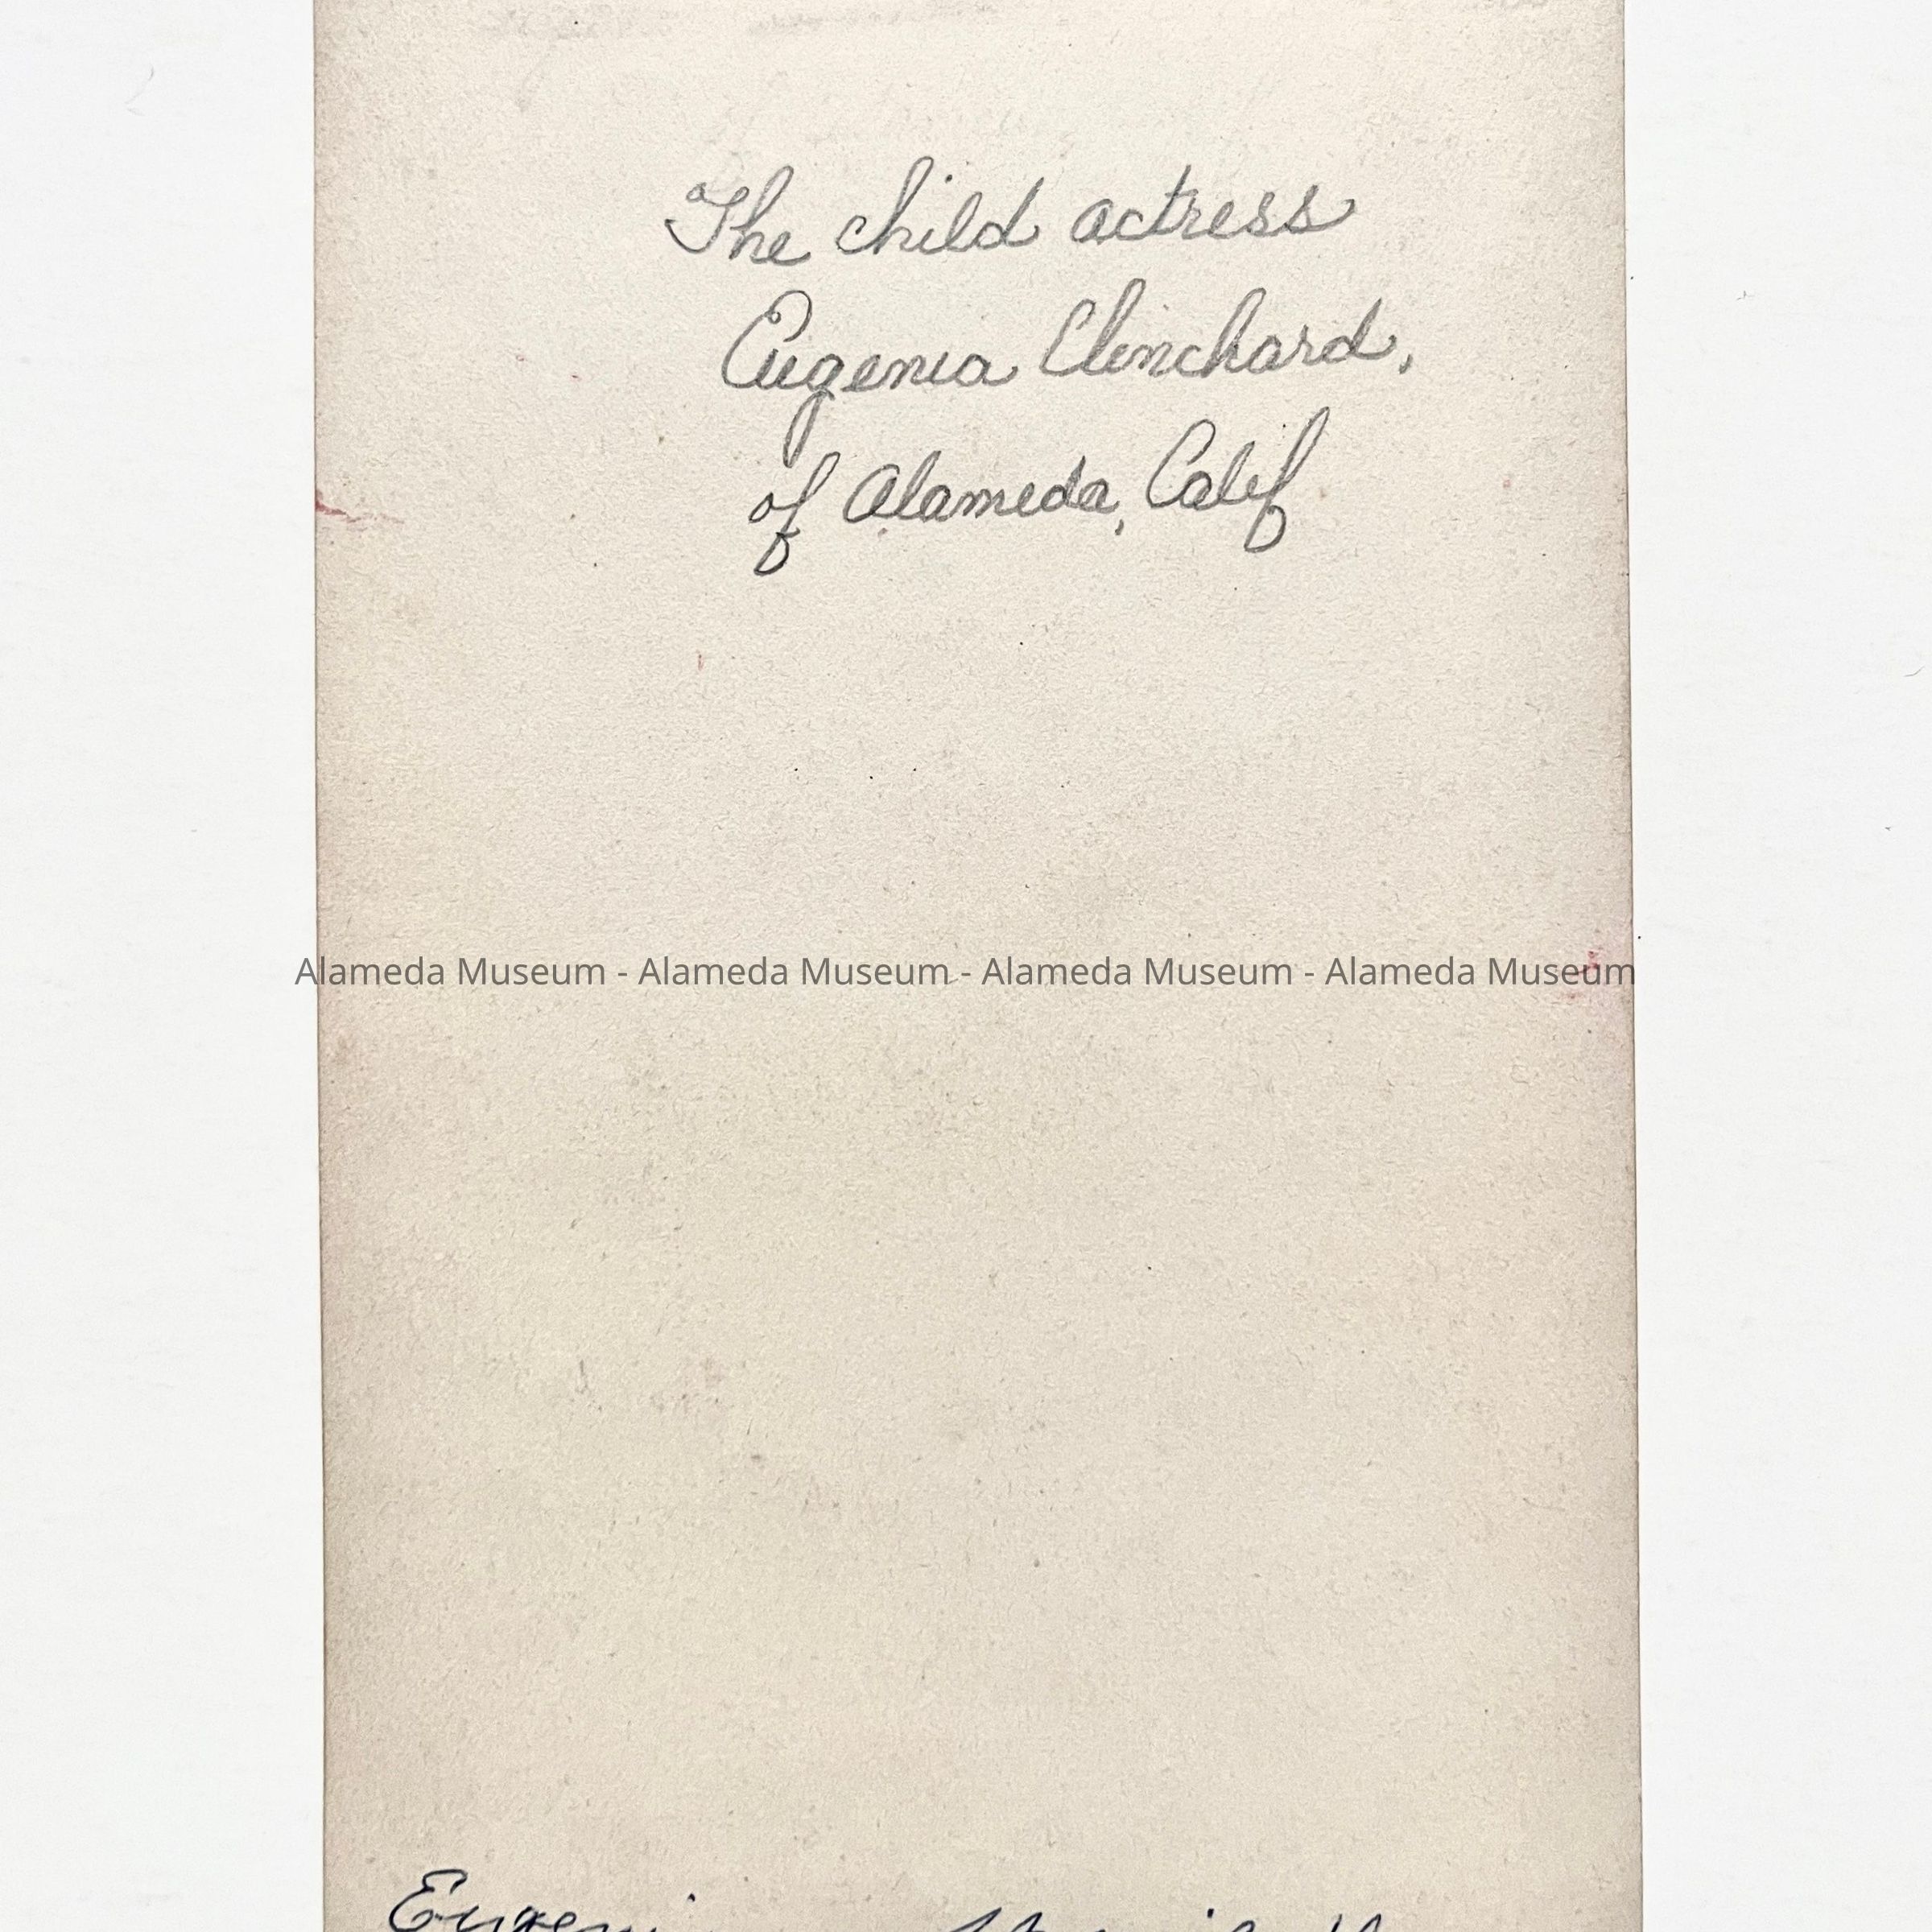 The child actress
Eugenia Clinchard,
of Alameda, Calif
Alameda Museum - Alameda Museum - Alameda Museum - Alameda Museum